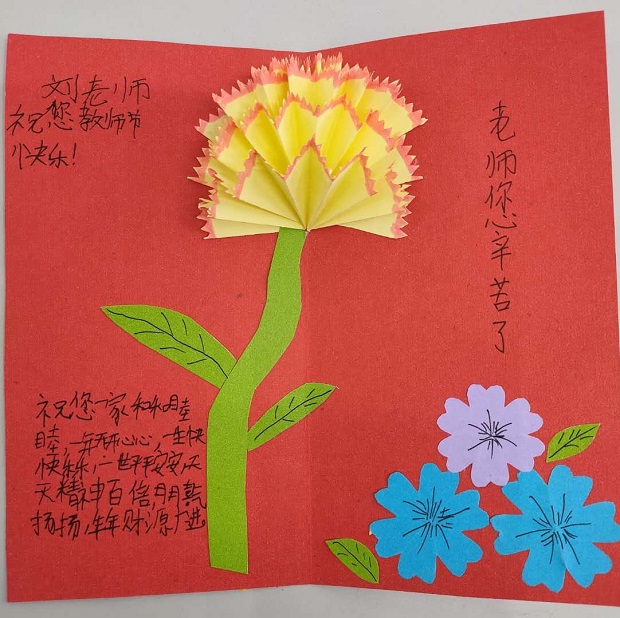 刘老师
祝您教师节
快乐!
祝您一家和和睦
睦,一年开开心心,一生快
快乐乐,一世平平安安,天
天精神百倍,月月
扬扬,年年财源广进。
老师您辛苦了